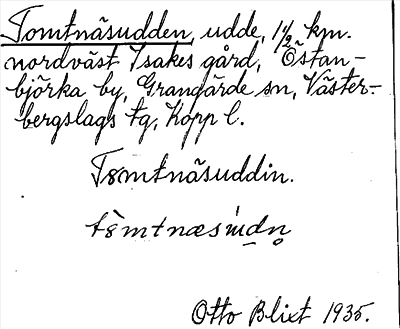 Tomtnäsudden, udde, 1½ km.
nordväst Isakes gård, Östan-
björka by, Grangärde sn, Väster-
bergslags tg, Kopp l.
Tomtnäsuddin.
Otto Blixt 1935.